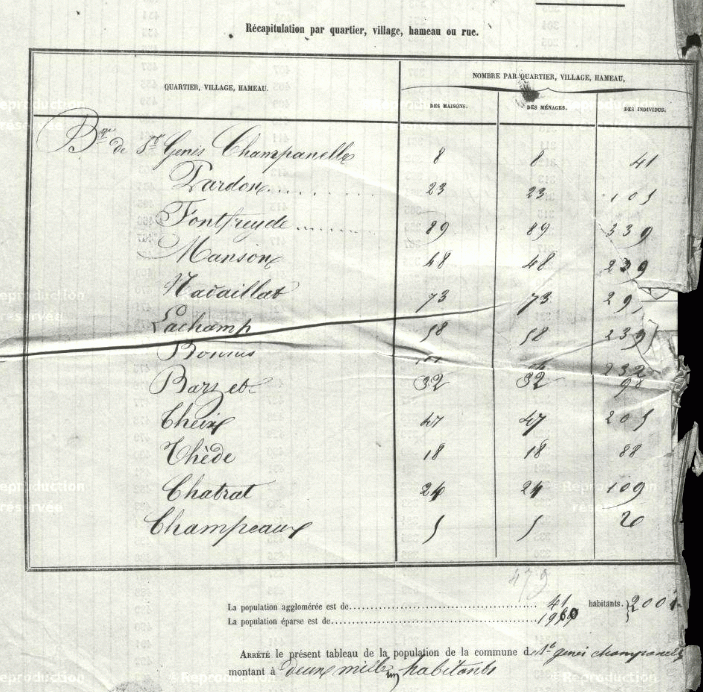 Récapitulation par quartier, village, hameau ou rue.
QUARTIER, VILLAGE, HAMEAU.
NOMBRE PAR QUARTIER, VILLAGE, HAMEAU,
DES MAISONS. DES MÉNAGES. DES INDIVIDUS.
Bg de St Genès Champanelle 8 8 41
Pardon 23 23 105
Fontfreyde 89 89 339
Manson 48 48 239
Nadaillat 73 73 29
Lachamp 58 58 239
232
Barzet 32 32
Cheix 47 47 205
Thède 18 18 88
Chatrat 24 24 109
Champeaux 5 5 20
479
La population agglomérée est de 41 habitants. 2001
La population éparse est de 1960
ARRÊTÉ le présent tableau de la population de la commune de St genès champanelle
montant à deux mille un habitants